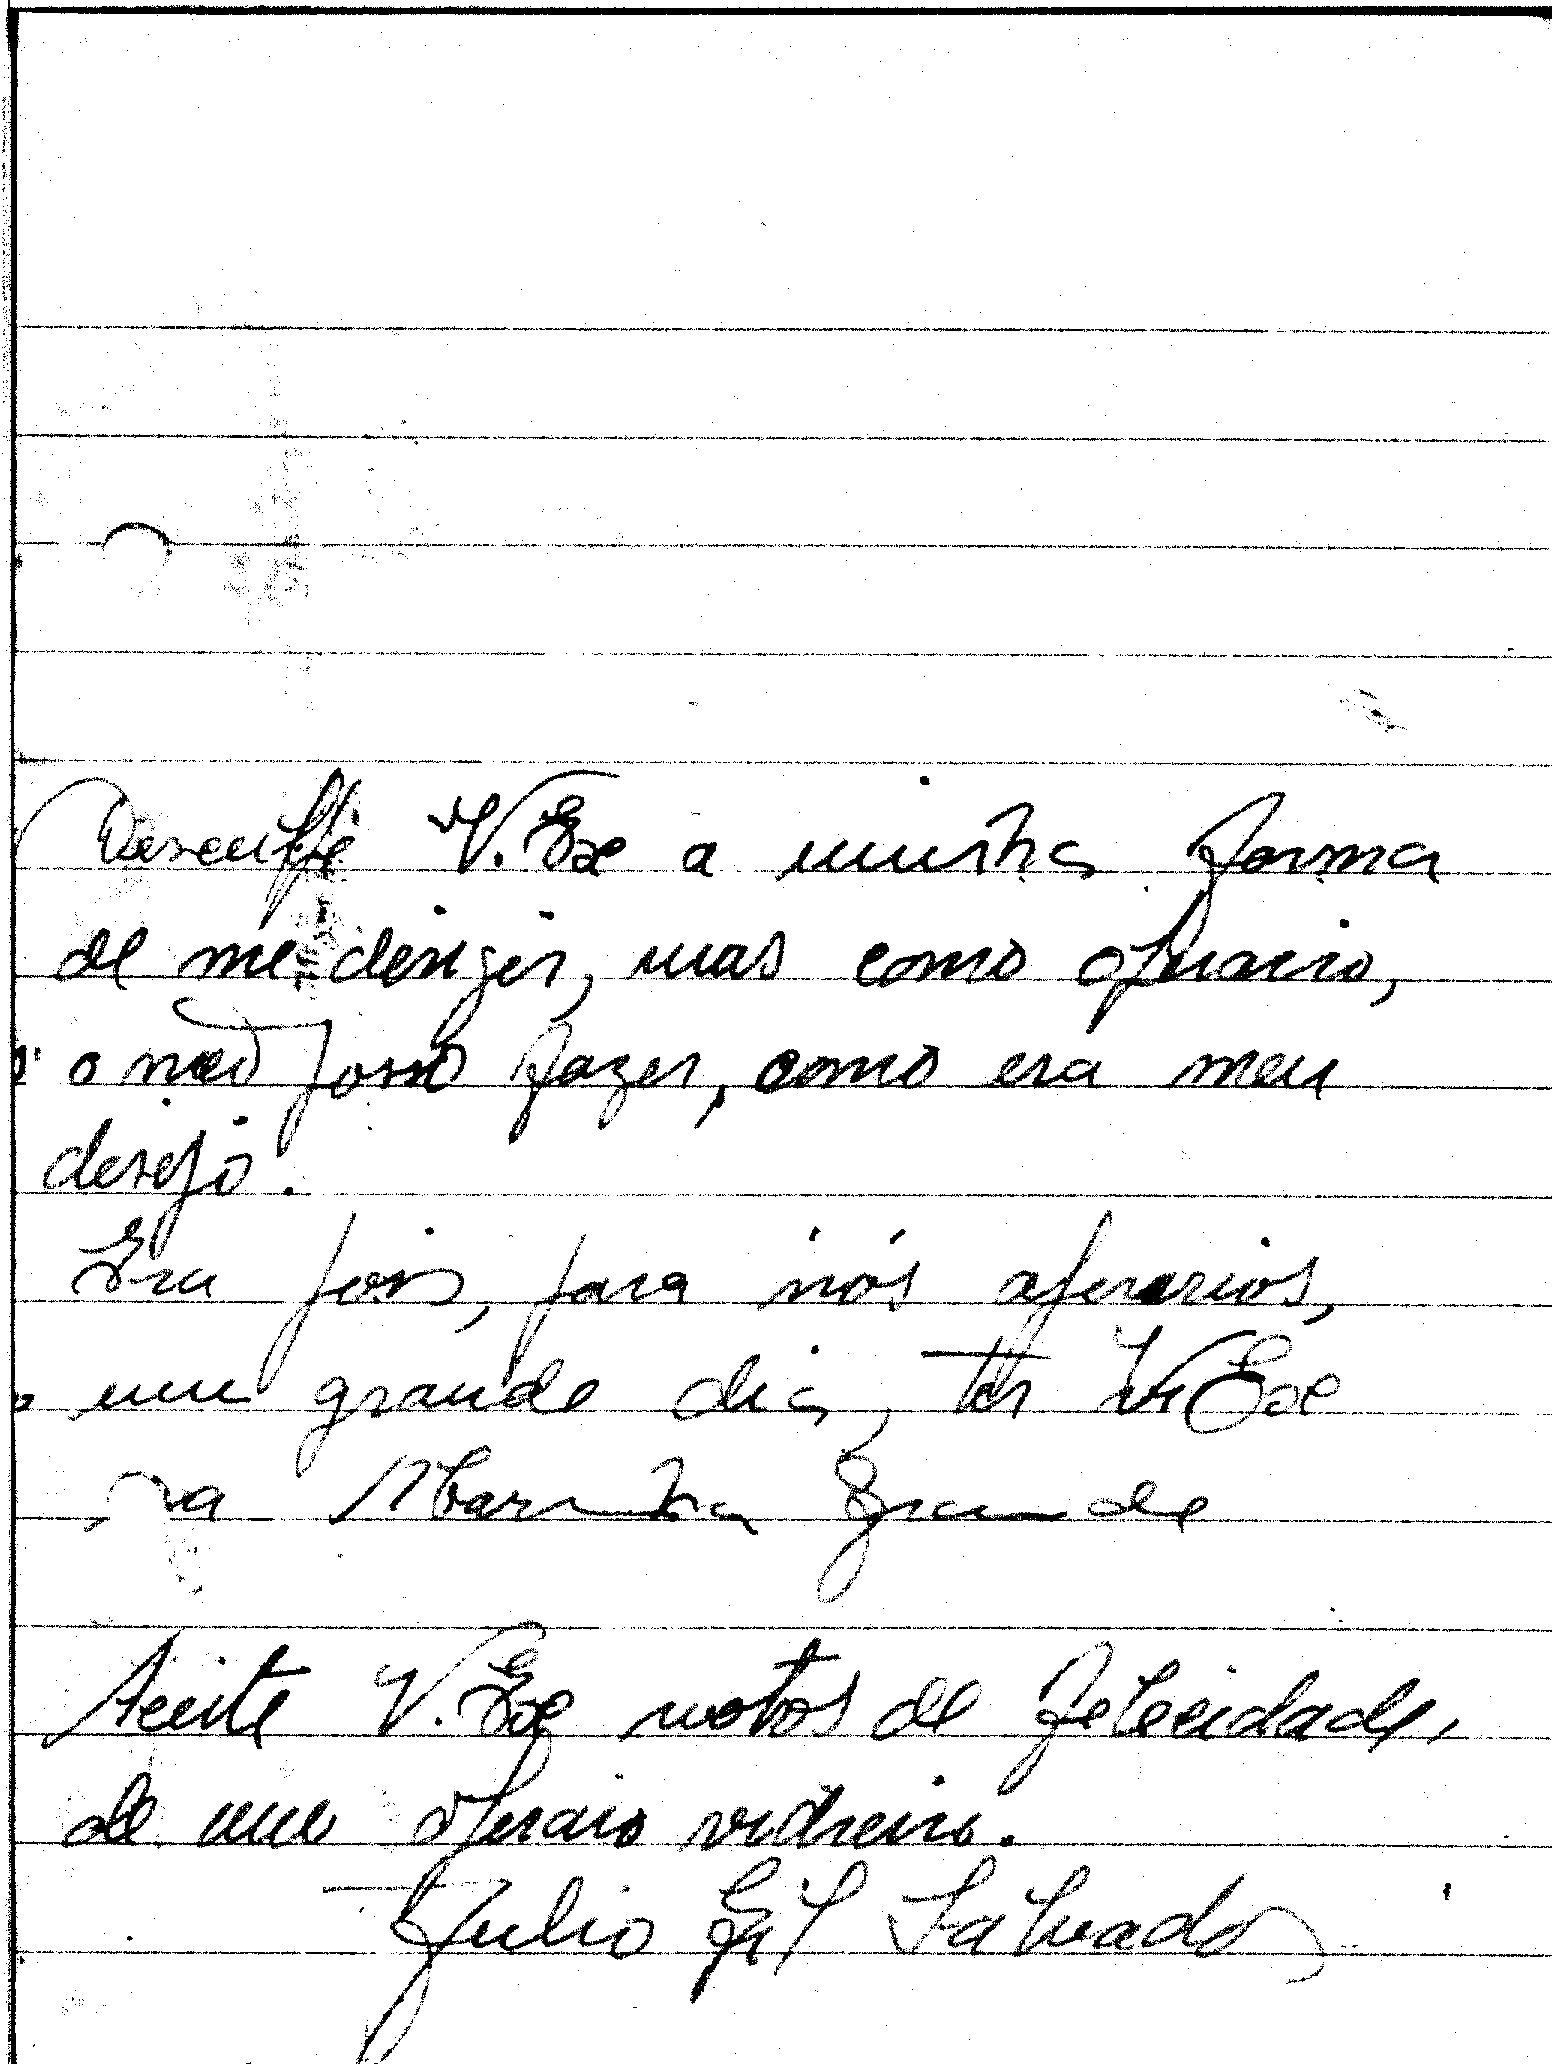 Desculpe V. Exe a minha forma
de me dirigir, mas como operario,
o não posso fazer, como era meu
desejo.
Era pois, para nós operarios,
um grande dia, ter V. Exe
na Marinha Grande
Aceite V. Exe votos de felecidade,
de um operaio vidreiro.
Julio Gil Salvador